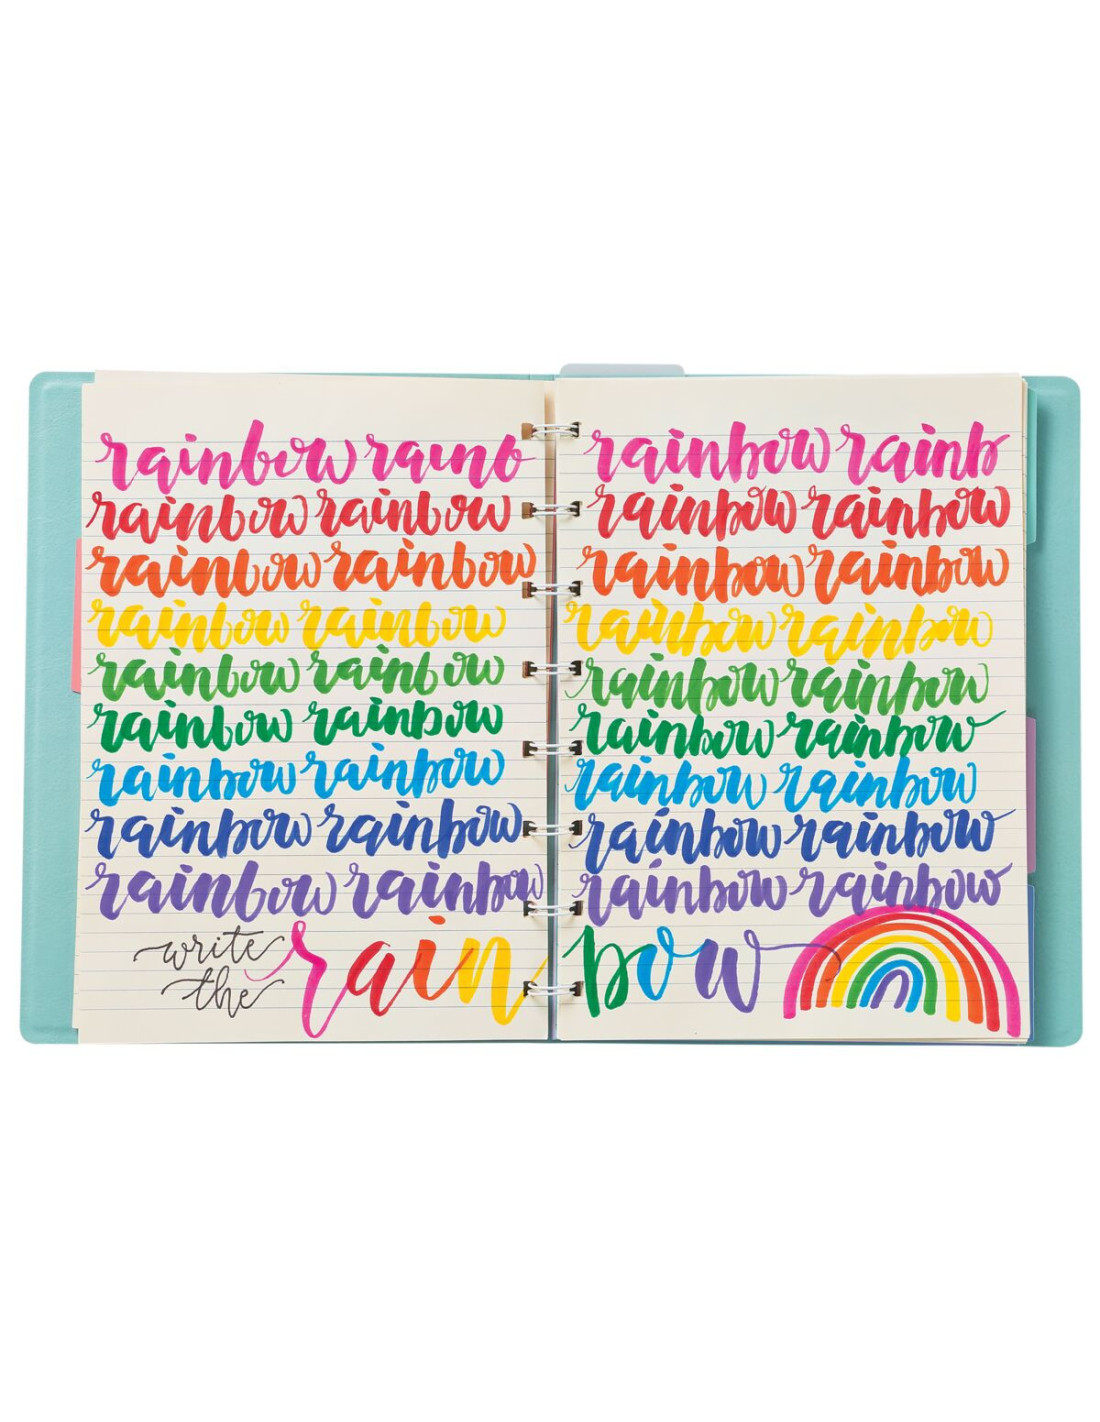 rainbow rainb
rainbow rainbow
rainbow rainbow
rainbow rainbow
rainbow rainbow
rainbow rainbow
rainbow rainbow
rainbow rainbow
rainbow rainbow
write
the rain
rainbow rainb
rainbow rainbow
rainbow rainbow
rainbow rainbow
rainbow rainbow
rainbow rainbow
rainbow rainbow
rainbow rainbow
rainbow rainbow
bow